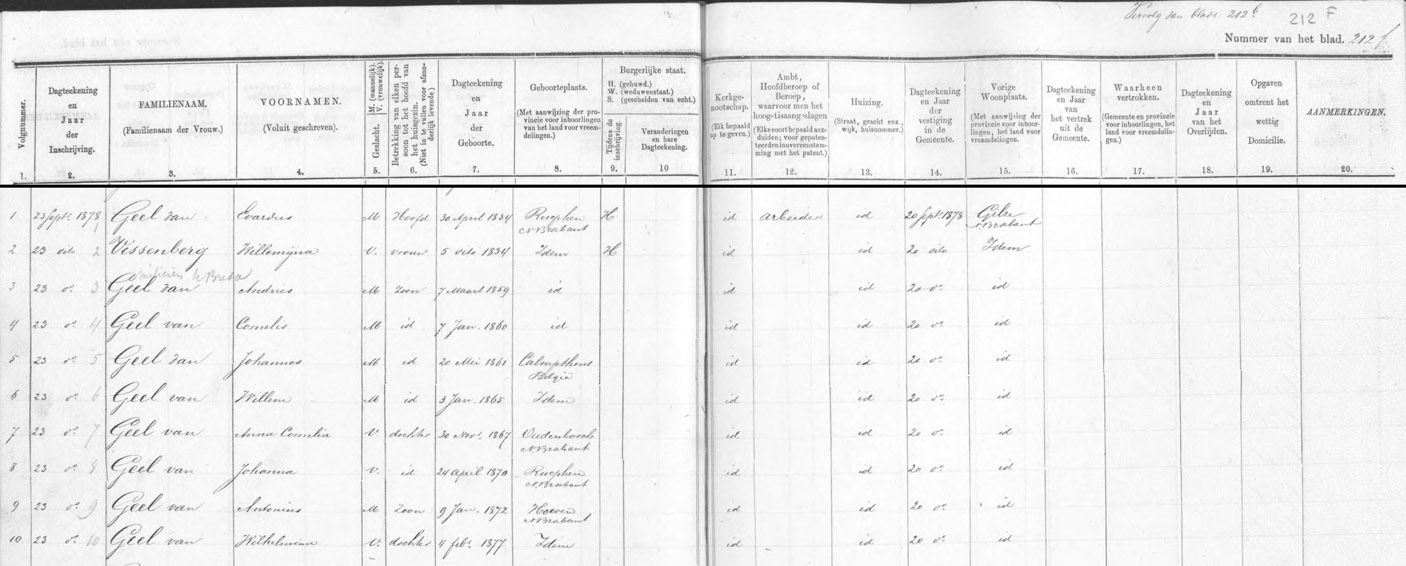 Vervolg van blad 212 b 212 F
Nummer van het blad. 212 f
Volgnummer.
Dagteekening en Jaar der Inschrijving.
FAMILIENAAM.
(Familienaam der Vrouw.)
VOORNAMEN.
(Voluit geschreven.)
Geslacht. M. (mannelijk). V. (vrouwelijk).
Betrekking van elken persoon tot het hoofd van het huisgezin. (Niet in te vullen voor afzonderlijk levende.)
Dagteekening en Jaar der Geboorte.
Geboorteplaats.
(Met aanwijzing der provincie voor inboorlingen van het land voor vreemdelingen.)
Burgerlijke staat.
H. (gehuwd.)
W. (weduwenstaat.)
S. (gescheiden van echt.)
Tijdens de inschrijving.
Veranderingen en hare Dagteekening.
Kerkgenootschap.
(Elk bepaald op te geven.)
Ambt, Hoofdberoep of Beroep, waarvoor men het hoogst is aangeslagen
(Elke soort bepaald aanduiden; voor gepatenteerden in overeenstemming met het patent.)
Huizing.
(Straat, gracht enz., wijk, huisnommer.)
Dagteekening en Jaar der vestiging in de Gemeente.
Vorige Woonplaats.
(Met aanwijzing der provincie voor inboorlingen, het land voor vreemdelingen.)
Dagteekening en Jaar van het vertrek uit de Gemeente.
Waarheen vertrokken.
(Gemeente en provincie voor inboorlingen, het land voor vreemdelingen.)
Dagteekening en Jaar van het Overlijden.
Opgaven omtrent het wettig Domicilie.
AANMERKINGEN.
1. 2. 3. 4. 5. 6. 7. 8. 9. 10 11. 12. 13. 14. 15. 16. 17. 18. 19. 20.
1 23 Sept. 1878 1 Geel van Evardus M Hoofd 30 April 1834 Rucphen N Brabant H id arbeider id 20 Sept. 1878 N Brabant
2 23 dito 2 Vissenberg Willemijna V. vrouw 5 dito 1834 Idem H id id 20 dito Idem
milicien te Breda
3 23 do 3 Geel van Andries M Zoon 7 Maart 1859 id id id 20 do id
4 23 do 4 Geel van Cornelis M id 7 Jan. 1860 id id id 20 do id
5 23 do 5 Geel van Johannes M id 20 Mei 1861 Calmpthout België id id 20 do id
6 23 do 6 Geel van Willem M id 3 Jan. 1865 Idem id id 20 do id
7 23 do 7 Geel van Anna Cornelia V. dochter 30 Nov. 1867 Oudenbosch N Brabant id id 20 do id
8 23 do 8 Geel van Johanna V. id 24 April 1870 Rucphen N Brabant id id 20 do id
9 23 do 9 Geel van Antonius M Zoon 9 Jan. 1872 Hoeven N Brabant id id 20 do id
10 23 do 10 Geel van Wilhelmina V. dochter 4 feb. 1877 Idem id id 20 do id